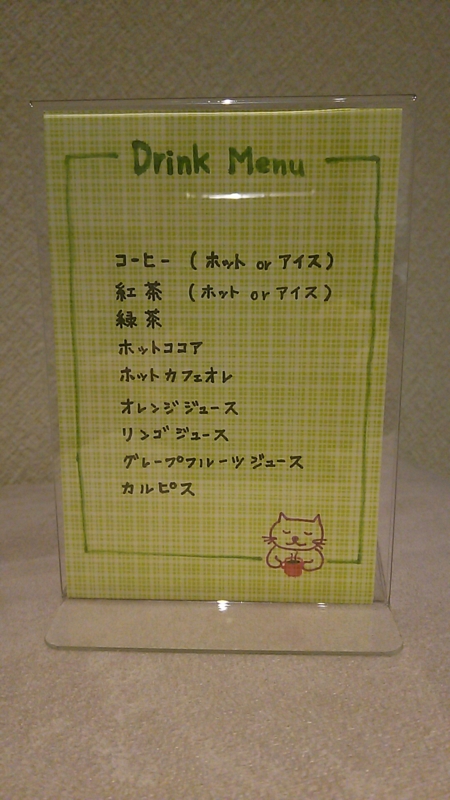 Drink Menu
コーヒー (ホット or アイス)
紅茶 (ホット or アイス)
緑茶
ホットココア
ホットカフェオレ
オレンジジュース
リンゴジュース
グレープフルーツジュース
カルピス